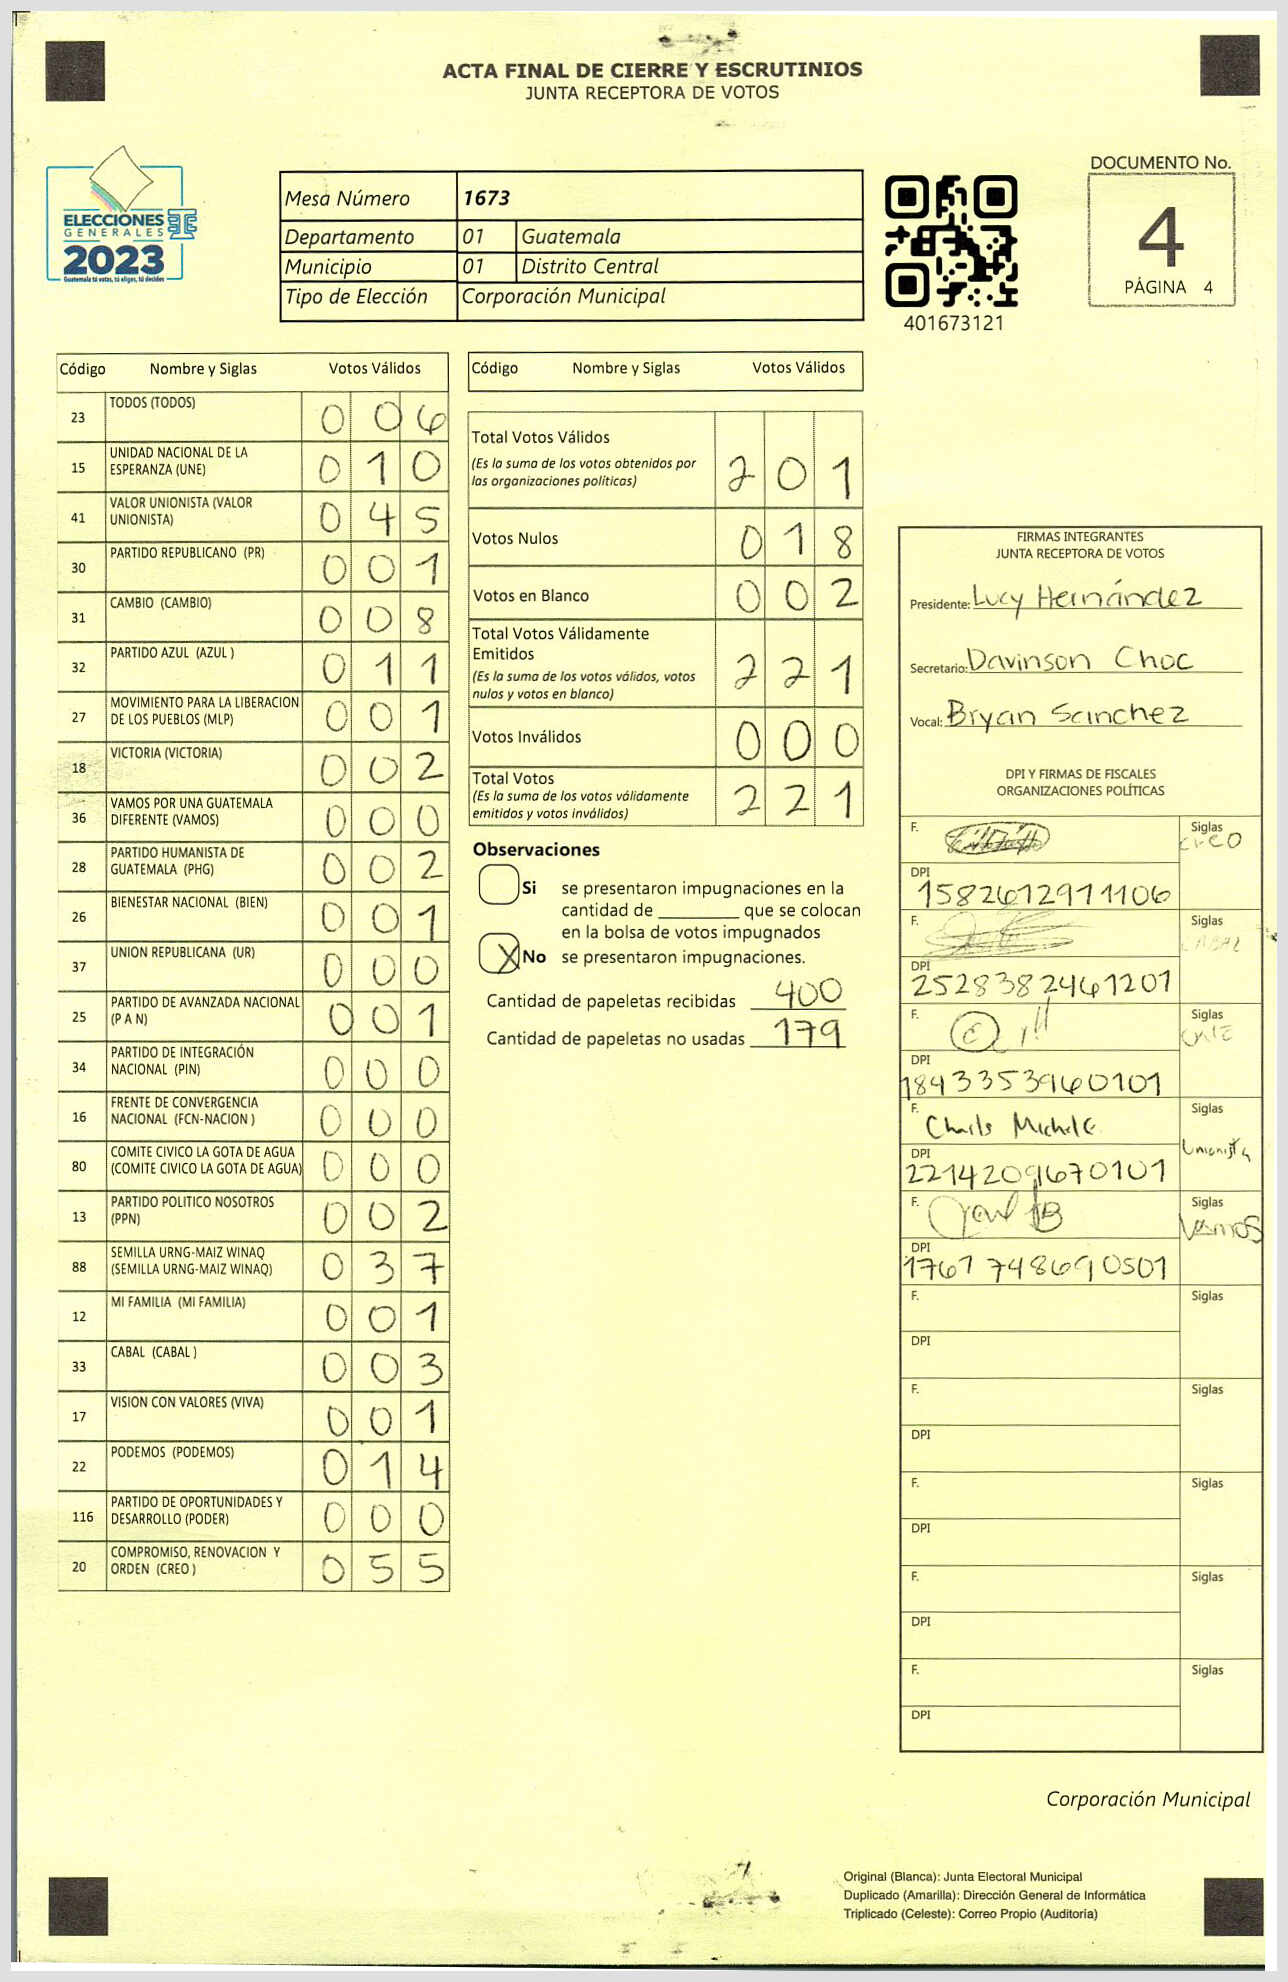 ACTA FINAL DE CIERRE Y ESCRUTINIOS
JUNTA RECEPTORA DE VOTOS
ELECCIONES
GENERALES
2023
Guatemala tú votas, tú eliges, tú decides
Mesa Número 1673
Departamento 01 Guatemala
Municipio 01 Distrito Central
Tipo de Elección Corporación Municipal
401673121
DOCUMENTO No.
4
PÁGINA 4
Código Nombre y Siglas Votos Válidos
23 TODOS (TODOS) 0 0 6
15 UNIDAD NACIONAL DE LA ESPERANZA (UNE) 0 1 0
41 VALOR UNIONISTA (VALOR UNIONISTA) 0 4 5
30 PARTIDO REPUBLICANO (PR) 0 0 1
31 CAMBIO (CAMBIO) 0 0 8
32 PARTIDO AZUL (AZUL ) 0 1 1
27 MOVIMIENTO PARA LA LIBERACION DE LOS PUEBLOS (MLP) 0 0 1
18 VICTORIA (VICTORIA) 0 0 2
36 VAMOS POR UNA GUATEMALA DIFERENTE (VAMOS) 0 0 0
28 PARTIDO HUMANISTA DE GUATEMALA (PHG) 0 0 2
26 BIENESTAR NACIONAL (BIEN) 0 0 1
37 UNION REPUBLICANA (UR) 0 0 0
25 PARTIDO DE AVANZADA NACIONAL (P A N) 0 0 1
34 PARTIDO DE INTEGRACIÓN NACIONAL (PIN) 0 0 0
16 FRENTE DE CONVERGENCIA NACIONAL (FCN-NACION ) 0 0 0
80 COMITE CIVICO LA GOTA DE AGUA (COMITE CIVICO LA GOTA DE AGUA) 0 0 0
13 PARTIDO POLITICO NOSOTROS (PPN) 0 0 2
88 SEMILLA URNG-MAIZ WINAQ (SEMILLA URNG-MAIZ WINAQ) 0 3 7
12 MI FAMILIA (MI FAMILIA) 0 0 1
33 CABAL (CABAL ) 0 0 3
17 VISION CON VALORES (VIVA) 0 0 1
22 PODEMOS (PODEMOS) 0 1 4
116 PARTIDO DE OPORTUNIDADES Y DESARROLLO (PODER) 0 0 0
20 COMPROMISO, RENOVACION Y ORDEN (CREO ) 0 5 5
Código Nombre y Siglas Votos Válidos
Total Votos Válidos 2 0 1
(Es la suma de los votos obtenidos por
las organizaciones políticas)
Votos Nulos 0 1 8
Votos en Blanco 0 0 2
Total Votos Válidamente
Emitidos 2 2 1
(Es la suma de los votos válidos, votos
nulos y votos en blanco)
Votos Inválidos 0 0 0
Total Votos 2 2 1
(Es la suma de los votos válidamente
emitidos y votos inválidos)
Observaciones
Si se presentaron impugnaciones en la
cantidad de ________ que se colocan
en la bolsa de votos impugnados
X No se presentaron impugnaciones.
Cantidad de papeletas recibidas 400
Cantidad de papeletas no usadas 179
FIRMAS INTEGRANTES
JUNTA RECEPTORA DE VOTOS
Presidente: Lucy Hernández
Secretario: Davinson Choc
Vocal: Bryan Sanchez
DPI Y FIRMAS DE FISCALES
ORGANIZACIONES POLÍTICAS
F. Siglas creo
DPI 1582612911106
F. Siglas
DPI 2528382461201
F. Siglas
DPI 1843353960101
F. Siglas Unionista
DPI 2214209670101
F. Siglas Vamos
DPI 1767748690501
F. Siglas
DPI
F. Siglas
DPI
F. Siglas
DPI
F. Siglas
DPI
F. Siglas
DPI
Corporación Municipal
Original (Blanca): Junta Electoral Municipal
Duplicado (Amarilla): Dirección General de Informática
Triplicado (Celeste): Correo Propio (Auditoría)